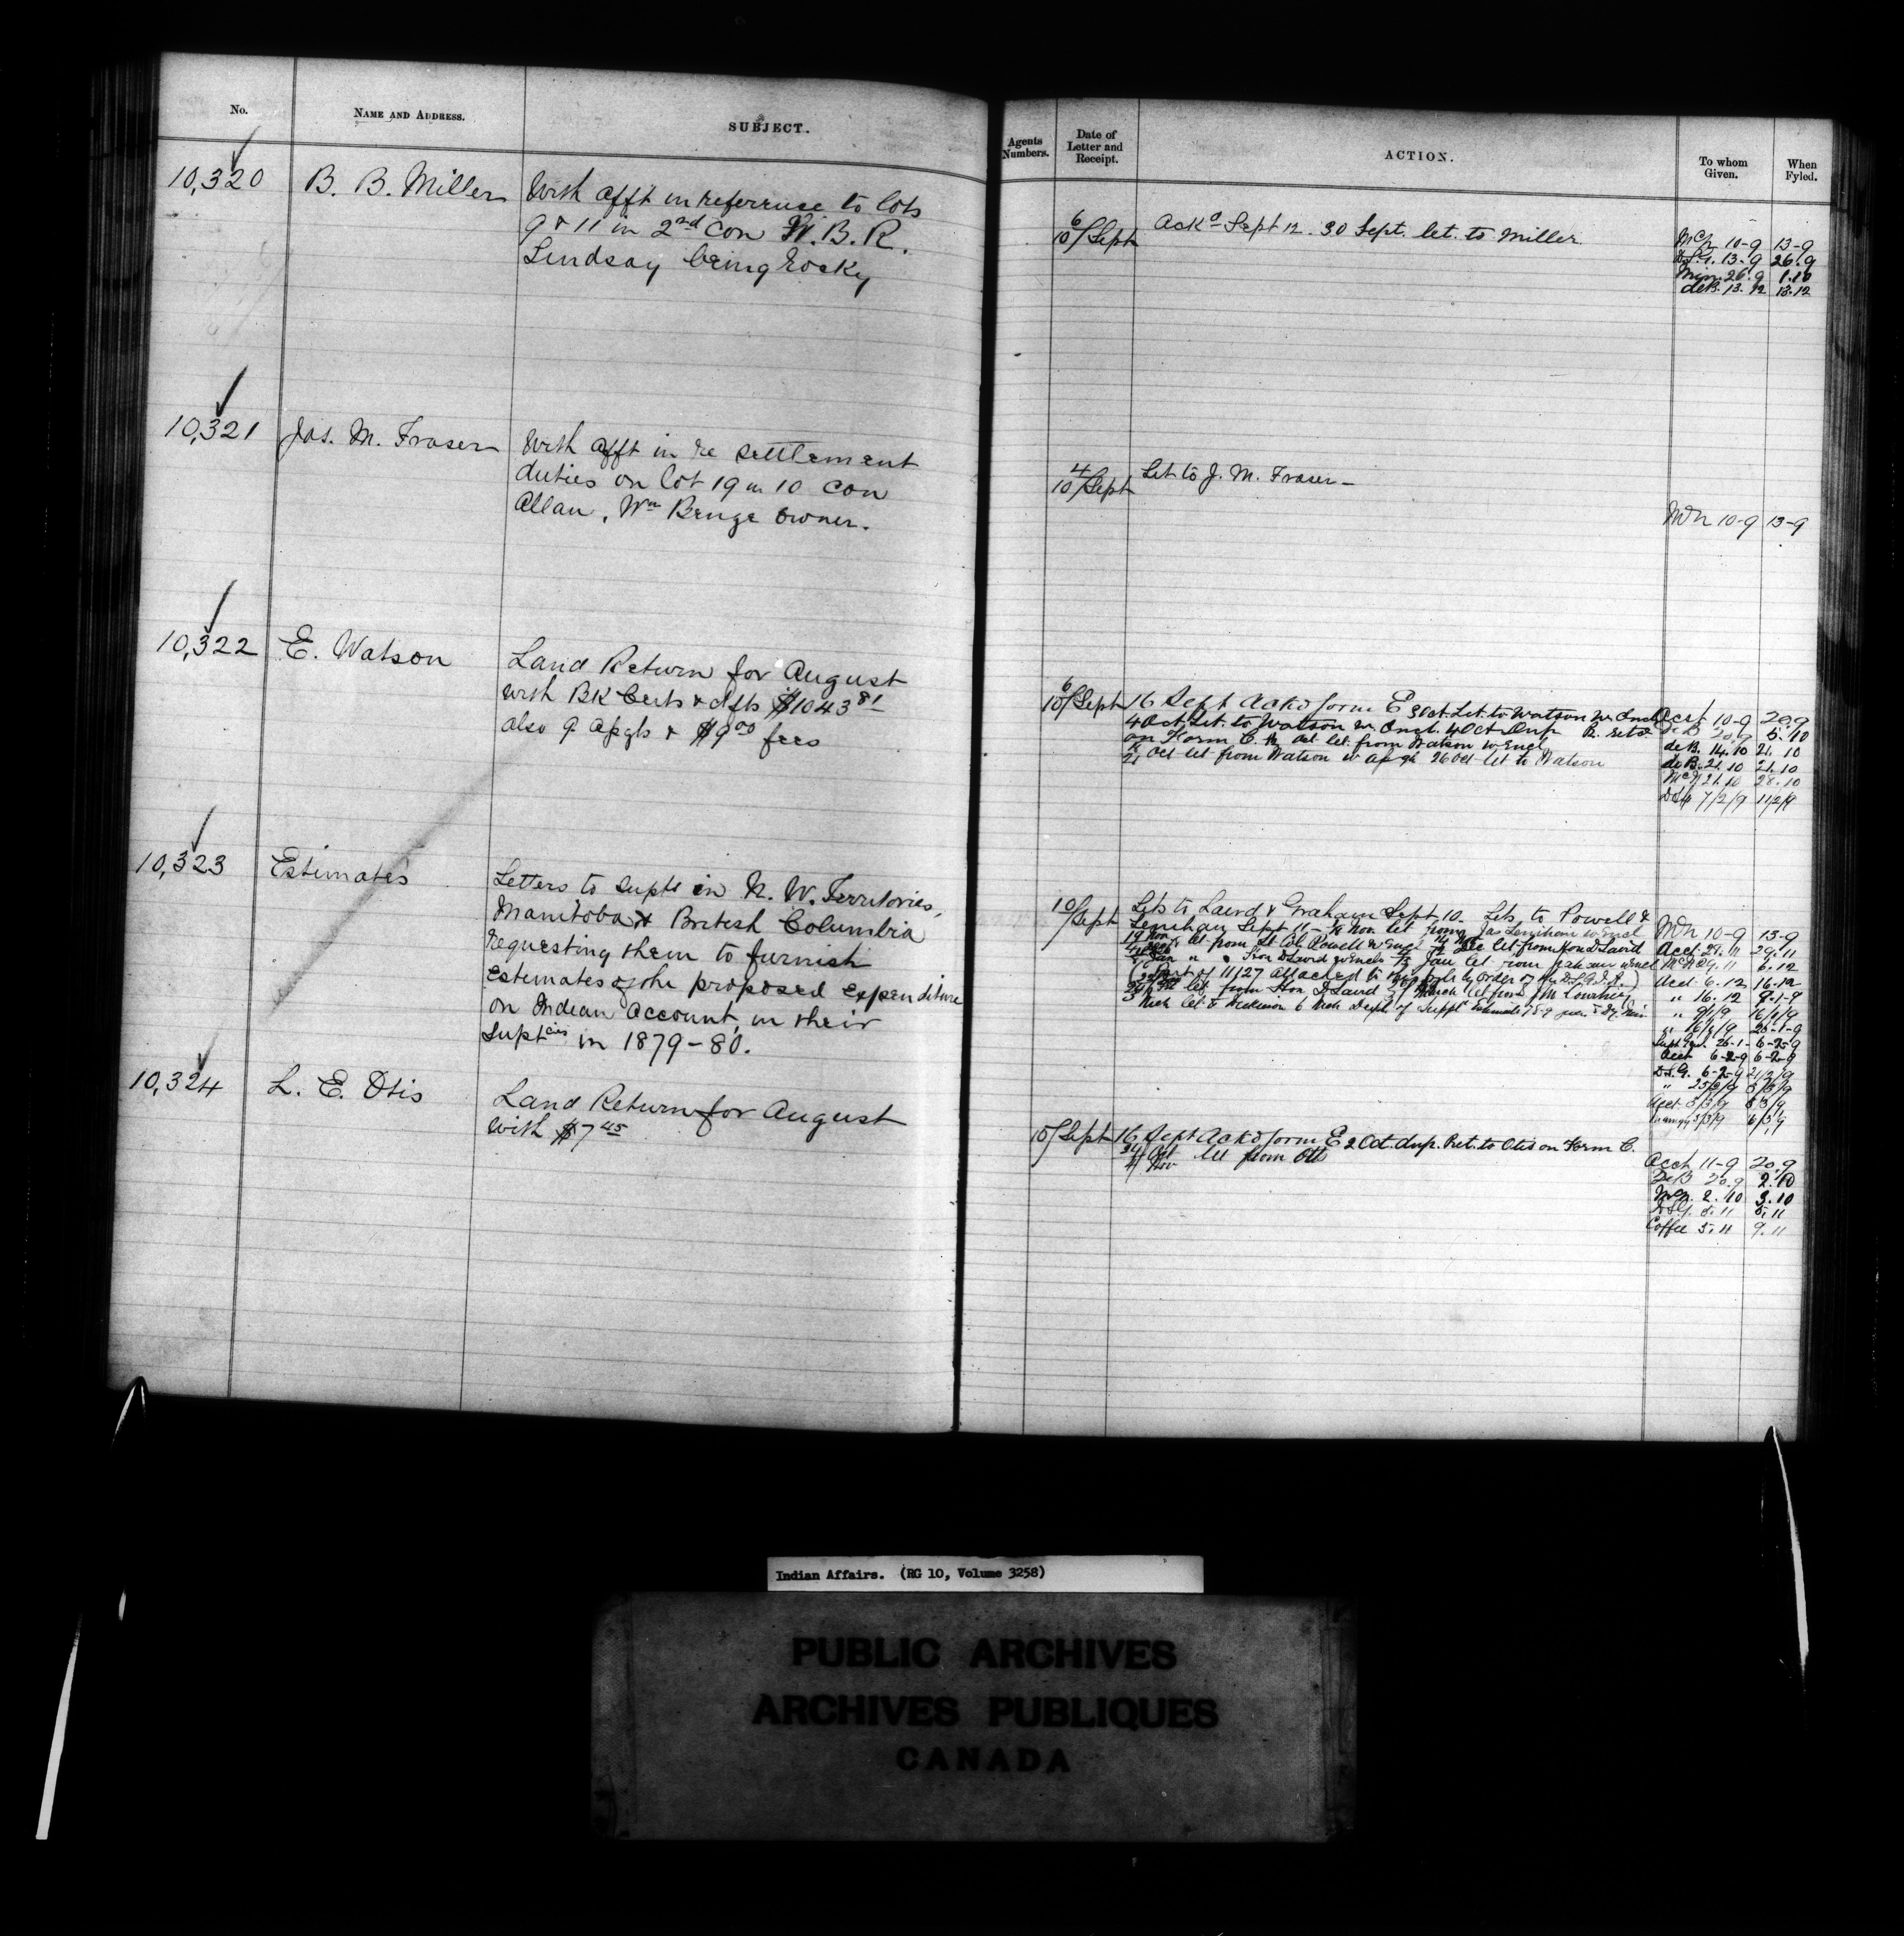 No.
NAME AND ADDRESS.
SUBJECT.
10,320
B. B. Miller
With afft in referense to lots
9 & 11 in 2nd Con W. B. R.
Lindsay being rocky
10,321
Jas. M. Fraser
With afft in re settlement
duties on lot 19 in 10 Con
Allan, Wm Benge owner.
10,322
E. Watson
Land Return for August
with BK Certs & dfts $1043 81
also 9 apgts & $9 00 fees
10,323
Estimates
Letters to Supts in N. W. Territories,
Manitoba & British Columbia
requesting them to furnish
Estimates of the proposed expenditure
on Indian Account in their
Suptcies in 1879-80.
10,324
L. E. Otis
Land Return for August
with $7 45
Agents Numbers.
Date of Letter and Receipt.
ACTION.
To whom Given.
When Fyled.
6
10/Sept
Ackd Sept 12. 30 Sept. let. to Miller
10-9 13-9
13-9 26.9
Min. 26.9 1.10
deB. 13.12 13.12
4
10/Sept
Let to J. M. Fraser
10-9 13-9
6
10/Sept
16 Sept Ackd form E 3 Oct. Let. to Watson w. Encl
4 Oct. Let. to Watson w. Encl. 4 Oct Dup R. retd
on Form C. Oct let. from Watson w Encl
21 Oct let from Watson w apgts 26 Oct let to Watson
Acct 10-9 20.9
deB 20.9 5.10
deB. 14.10 21.10
deB. 21.10 21.10
21.10 28.10
7/2/9 11/2/9
10/Sept
Lets to Laird & Graham Sept 10. Lets to Powell &
Lenihan Sept 11 Nov. let from Jas Lenihan w Encl
19 Nov let from Lt Col. Powell w Encl Dec let from Hon D Laird
Jan " " Hon D Laird w Encls Jan let from Graham w Encl
Part of 11127 attached to this by Order of the D.S.G.I.A.
let from Hon D Laird March let from J M Courtney
Mch let to 6 Mch Dept of Suppl Estimates
10-9 13-9
Acct. 28.11 29.11
29.11 6.12
Acct 6.12 16.12
" 16.12 9-1-9
" 9/1/9 16/1/9
" 16/1/9 25-1-9
26-1- 6-2-9
Acct 6-2-9 6-2-9
D.S.G. 6-2-9 21/2/9
" 25/2/9 3/3/9
Acct. 3/3/9 3/3/9
3/3/9 6/3/9
10/Sept
16 Sept Ackd form E 2 Oct. dup. Ret. to Otis on Form C.
4 Nov let from Otis
Acct 11-9 20.9
DeB 20.9 2.10
2.10 3.10
D.S.G. 5.11 5.11
Coffee 5.11 9.11
Indian Affairs. (RG 10, Volume 3258)
PUBLIC ARCHIVES
ARCHIVES PUBLIQUES
CANADA